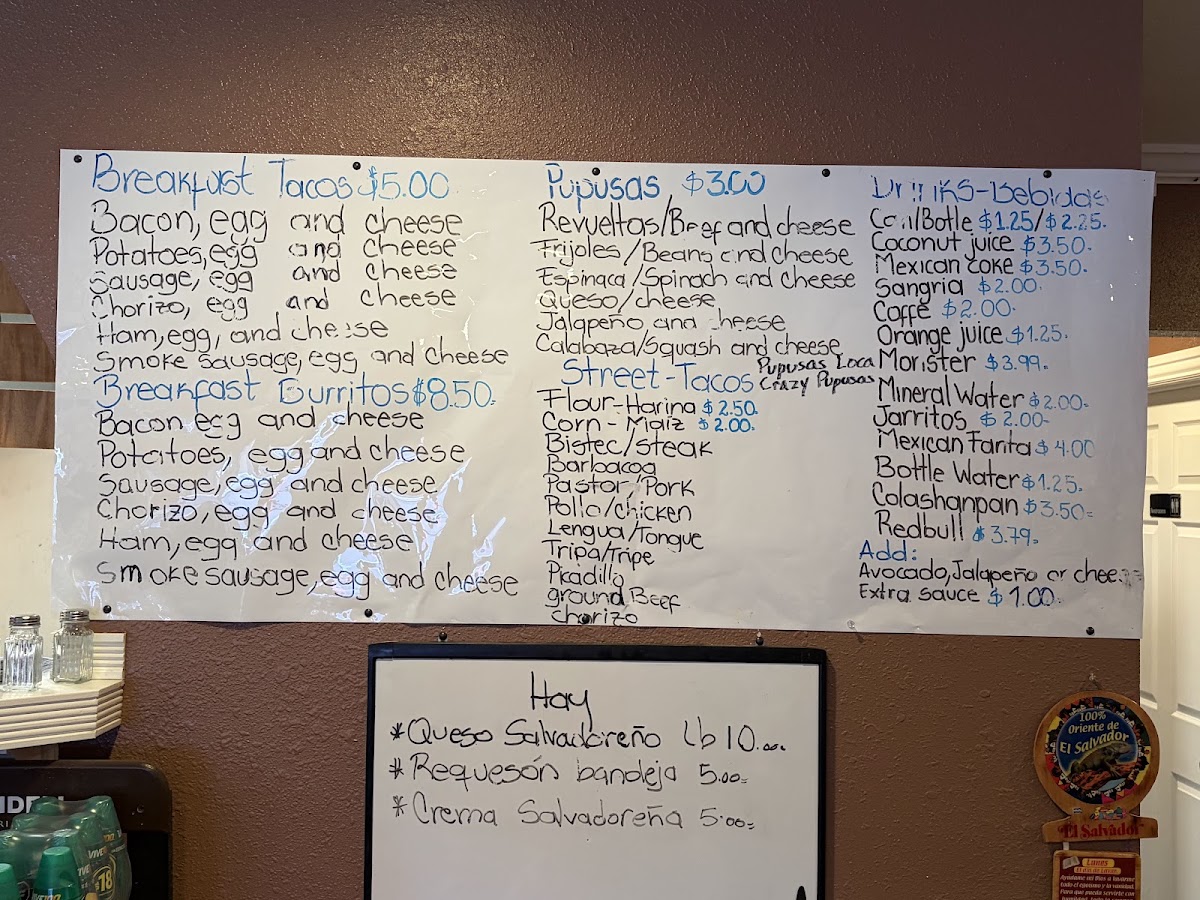 Breakfast Tacos $5.00
Bacon, egg and cheese
Potatoes, egg and cheese
Sausage, egg and cheese
Chorizo, egg and cheese
Ham, egg, and cheese
Smoke sausage, egg and cheese
Breakfast Burritos $8.50
Bacon egg and cheese
Potatoes, egg and cheese
Sausage, egg and cheese
Chorizo, egg and cheese
Ham, egg and cheese
Smoke sausage, egg and cheese
Pupusas $3.00
Revueltas/Beef and cheese
Frijoles/Beans and cheese
Espinaca/Spinach and cheese
Queso/cheese
Jalapeño and cheese
Calabaza/Squash and cheese
Pupusas Loca
Crazy Pupusas
Street-Tacos
Flour-Harina $2.50
Corn-Maiz $2.00
Bistec/steak
Barbacoa
Pastor/Pork
Pollo/chicken
Lengua/Tongue
Tripa/Tripe
Picadillo
ground Beef
Chorizo
Drinks-Bebidas
Botle $1.25/$2.25
Coconut juice $3.50
Mexican Coke $3.50
Sangria $2.00
Caffe $2.00
Orange juice $1.25
Monster $3.99
Mineral Water $2.00
Jarritos $2.00
Mexican Fanta $4.00
Bottle Water $1.25
Colashanpan $3.50
Redbull $3.79
Add:
Avocado, Jalapeño or cheese
Extra sauce $1.00
Hay
*Queso Salvadoreño Lb 10.00
*Requesón bandeja 5.00
*Crema Salvadoreña 5.00
100%
Oriente de
El Salvador
El Salvador
Lunes
VIVE
$18